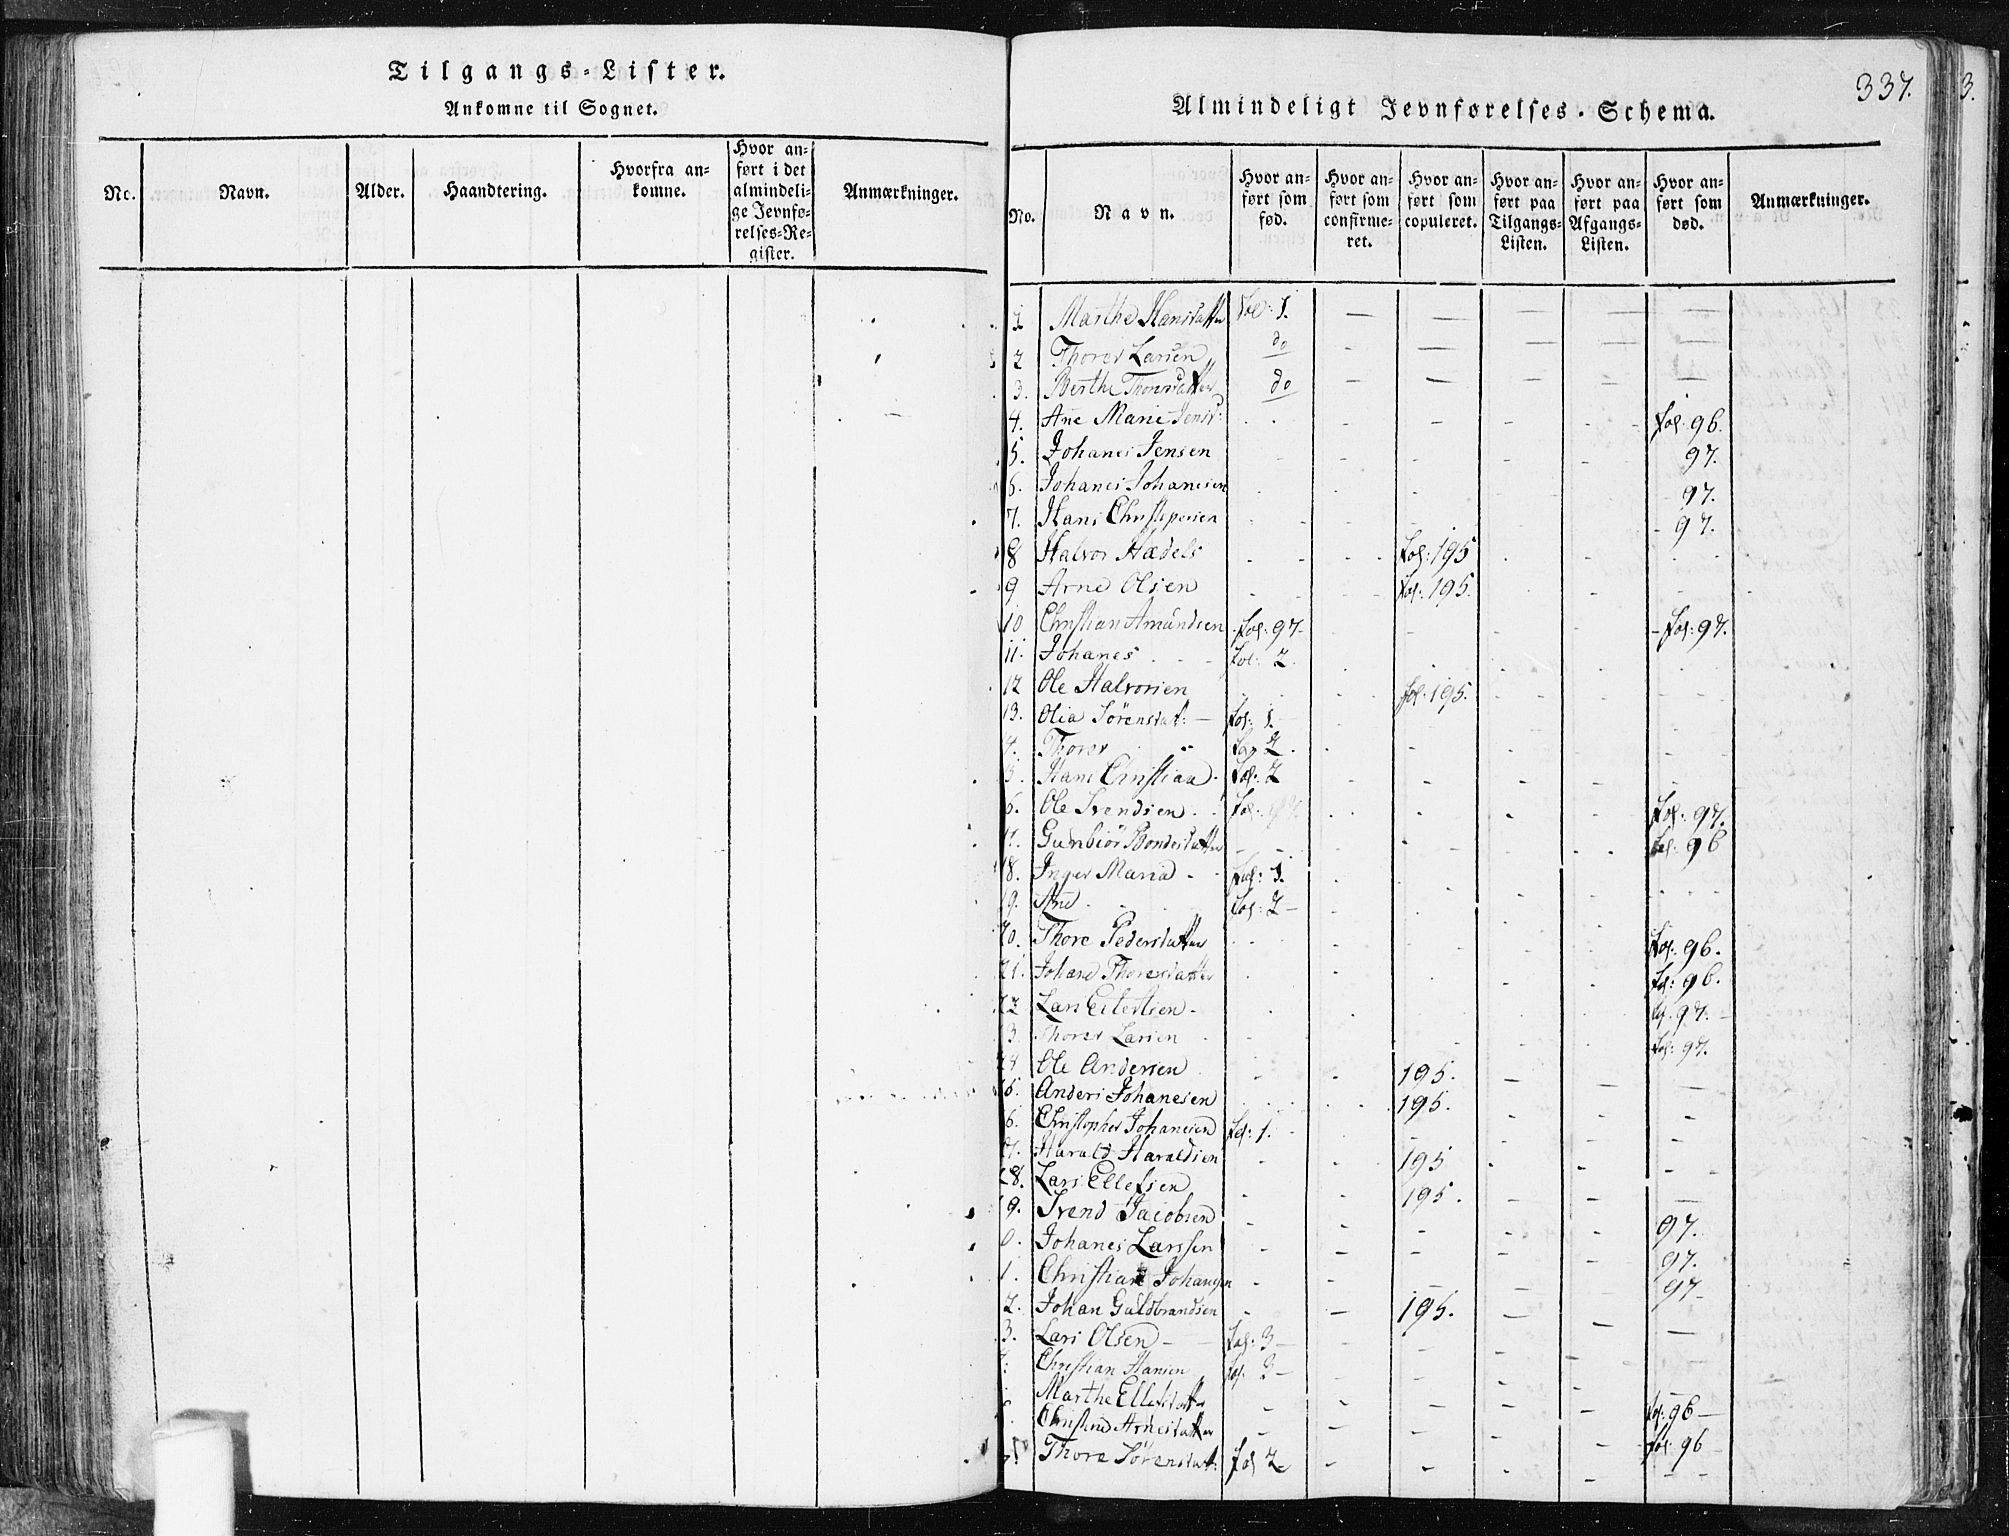 Tilgangs-Lister.
Ankomne til Sognet.
No.
Navn.
Alder.
Haandtering.
Hvorfra an-
komne.
Hvor an-
ført i det
almindeli-
ge Jevnfø-
relses-Re-
gister.
Anmærkninger.
337.
3.
Almindeligt Jevnførelses-Schema.
No.
Navn.
Hvor an-
ført som
fød.
Hvor an-
ført som
confirme-
ret.
Hvor an-
ført som
copuleret.
Hvor an-
ført paa
Tilgangs-
Listen.
Hvor an-
ført paa
Afgangs-
Listen.
Hvor an-
ført som
død.
Anmærkninger.
1 Marthe Hansdatter fol: 1. — — — — —
2 Thorer Larsen do - — — — —
3. Berthe Thorersdatter do — — — — —
4. Ane Marie Jensd: fol: 96.
5. Johanes Jensen 97.
6. Johanes Johanesen 97.
7. Hans Christophersen 97.
8 Halvor Hædels fol: 195
9 Arne Olsen fol: 195.
10 Christian Amundsen fol: 97- fol: 97.
11. Johanes fol: 2.
12 Ole Halvorsen fol: 195.
13. Olia Sørensdat: — fol: 1.
4. Thorer fol: 2.
5. Hans Christian fol: 2
6. Ole Svendsen fol: 97. fol: 97.
17. Gunbiør Bondesdatter fol: 96
18. Inger Maria fol: 1.
19. Ane fol: 2-
20. Thore Pedersdatter fol: 96.
21. Johane Thorersdatter fol: 96.
22 Lars Eilertsen fol: 97.
3. Thorer Larsen fol: 97.
24 Ole Andersen 195.
25. Anders Johanesen 195.
6. Christopher Johanesen fol: 1.
27. Harald Haraldsen 195
28. Lars Ellefsen 195.
9. Svend Jacobsen 97.
0. Johanes Larssen 97.
1. Christian Johansen 97-
2. Johan Guldbrandsen 195.
3. Lars Olsen fol: 3-
4. Christian Hansen fol: 3-
Marthe Ellefsdatter fol: 96-
6. Christine Arnesdatter fol: 96
Thore Sørensdat: fol 2